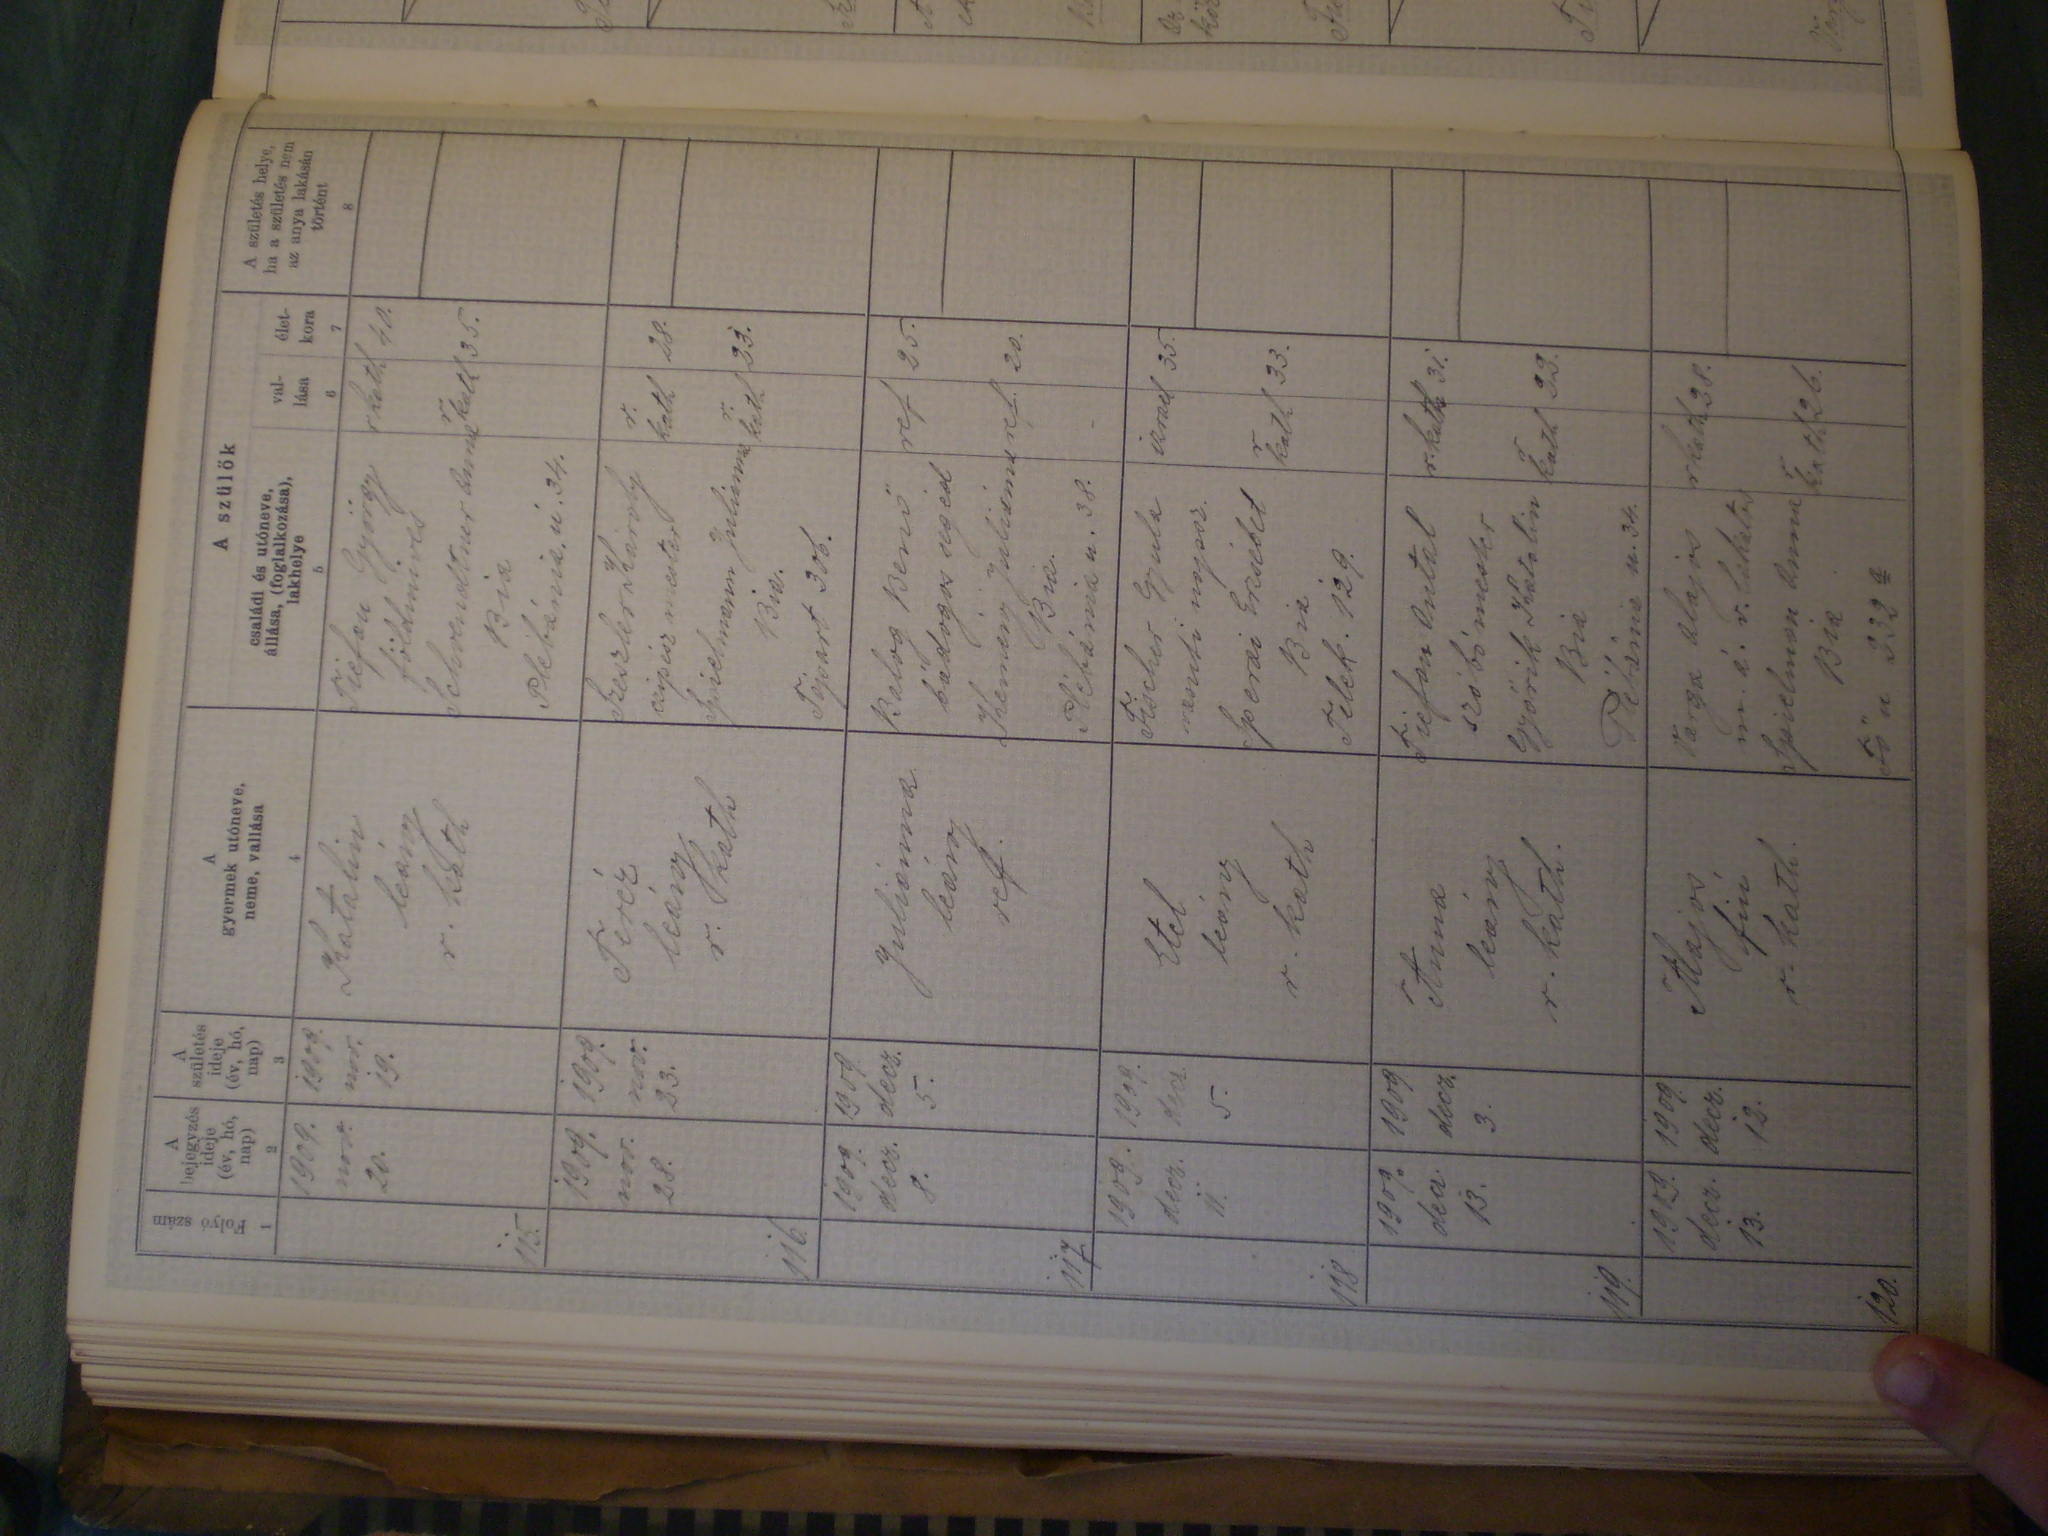 Folyó szám
1
A
bejegyzés
ideje
(év, hó,
nap)
2
A
születés
ideje
(év, hó,
nap)
3
A
gyermek utóneve,
neme, vallása
4
A szülők
családi és utóneve,
állása, (foglalkozása),
lakhelye
5
val-
lása
6
élet-
kora
7
A születés helye,
ha a születés nem
az anya lakásán
történt
8
115.
1909.
nov.
20.
1909.
nov.
19.
Katalin
leány
r. kath
Tiefau György
földmives
Schvendtner Anna
Bia
Plébánia u. 34.
r kath
40.
r kath
35.
116.
1909.
nov.
28.
1909.
nov.
23.
Teréz
leány
r. kath
Szeszler Károly
czipész mester
Spielmann Julianna
Bia.
r.
kath
28.
r.
kath
23.
117
1909.
decz.
8.
1909
decz.
5.
Juliánna
leány
ref.
Balog Benő
bádogos segéd
Kemény Juliánna
Bia.
Plébánia u. 38.
ref
25.
ref.
20.
118
1909.
decz.
11.
1909.
decz.
5.
Etel
leány
r. kath
Fischer Gyula
vasuti
Erzsébet
Bia
Telek. 129.
izrael
35.
r
kath
33.
119.
1909.
decz.
13.
1909
decz.
3.
Anna
leány
r. kath.
Tiefau Antal
szabó mester
Györik Katalin
Bia
Plébánia u. 34.
r. kath
31.
r
kath
23.
120.
1909.
decz.
13.
1909.
decz.
12.
Alajos
fiú
r. kath.
Varga Alajos
m. á. v. lakatos
Spielman Anna
Bia
Fő u 232 a
r kath
28.
r
kath
26.